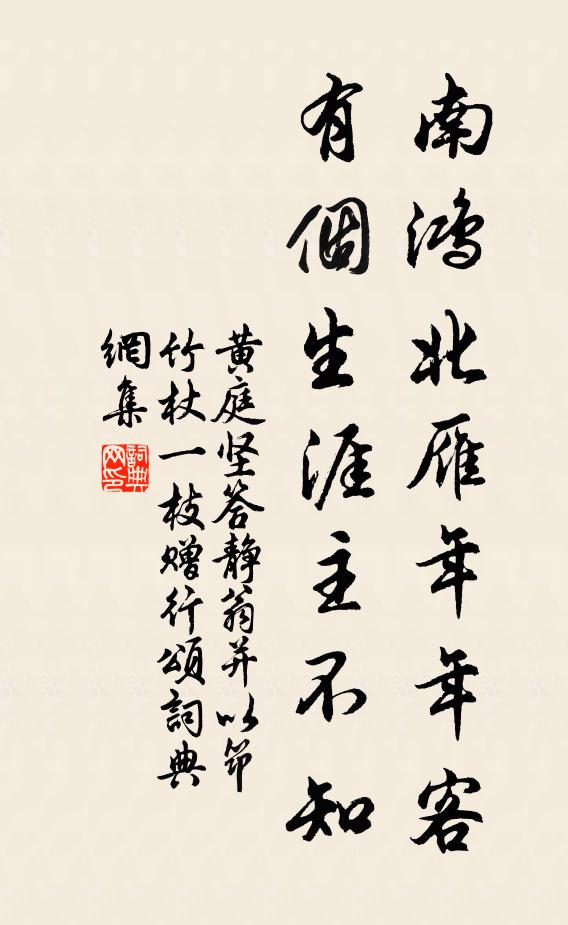 南鸿北雁年年客
有個生涯主不知
黄庭坚答静翁并以筇
竹杖一枝赠行頌詞典
網集
詞典
网印